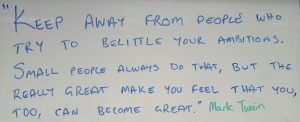 "KEEP AWAY FROM PEOPLE WHO
TRY TO BELITTLE YOUR AMBITIONS.
SMALL PEOPLE ALWAYS DO THAT, BUT THE
REALLY GREAT MAKE YOU FEEL THAT YOU,
TOO, CAN BECOME GREAT." Mark Twain